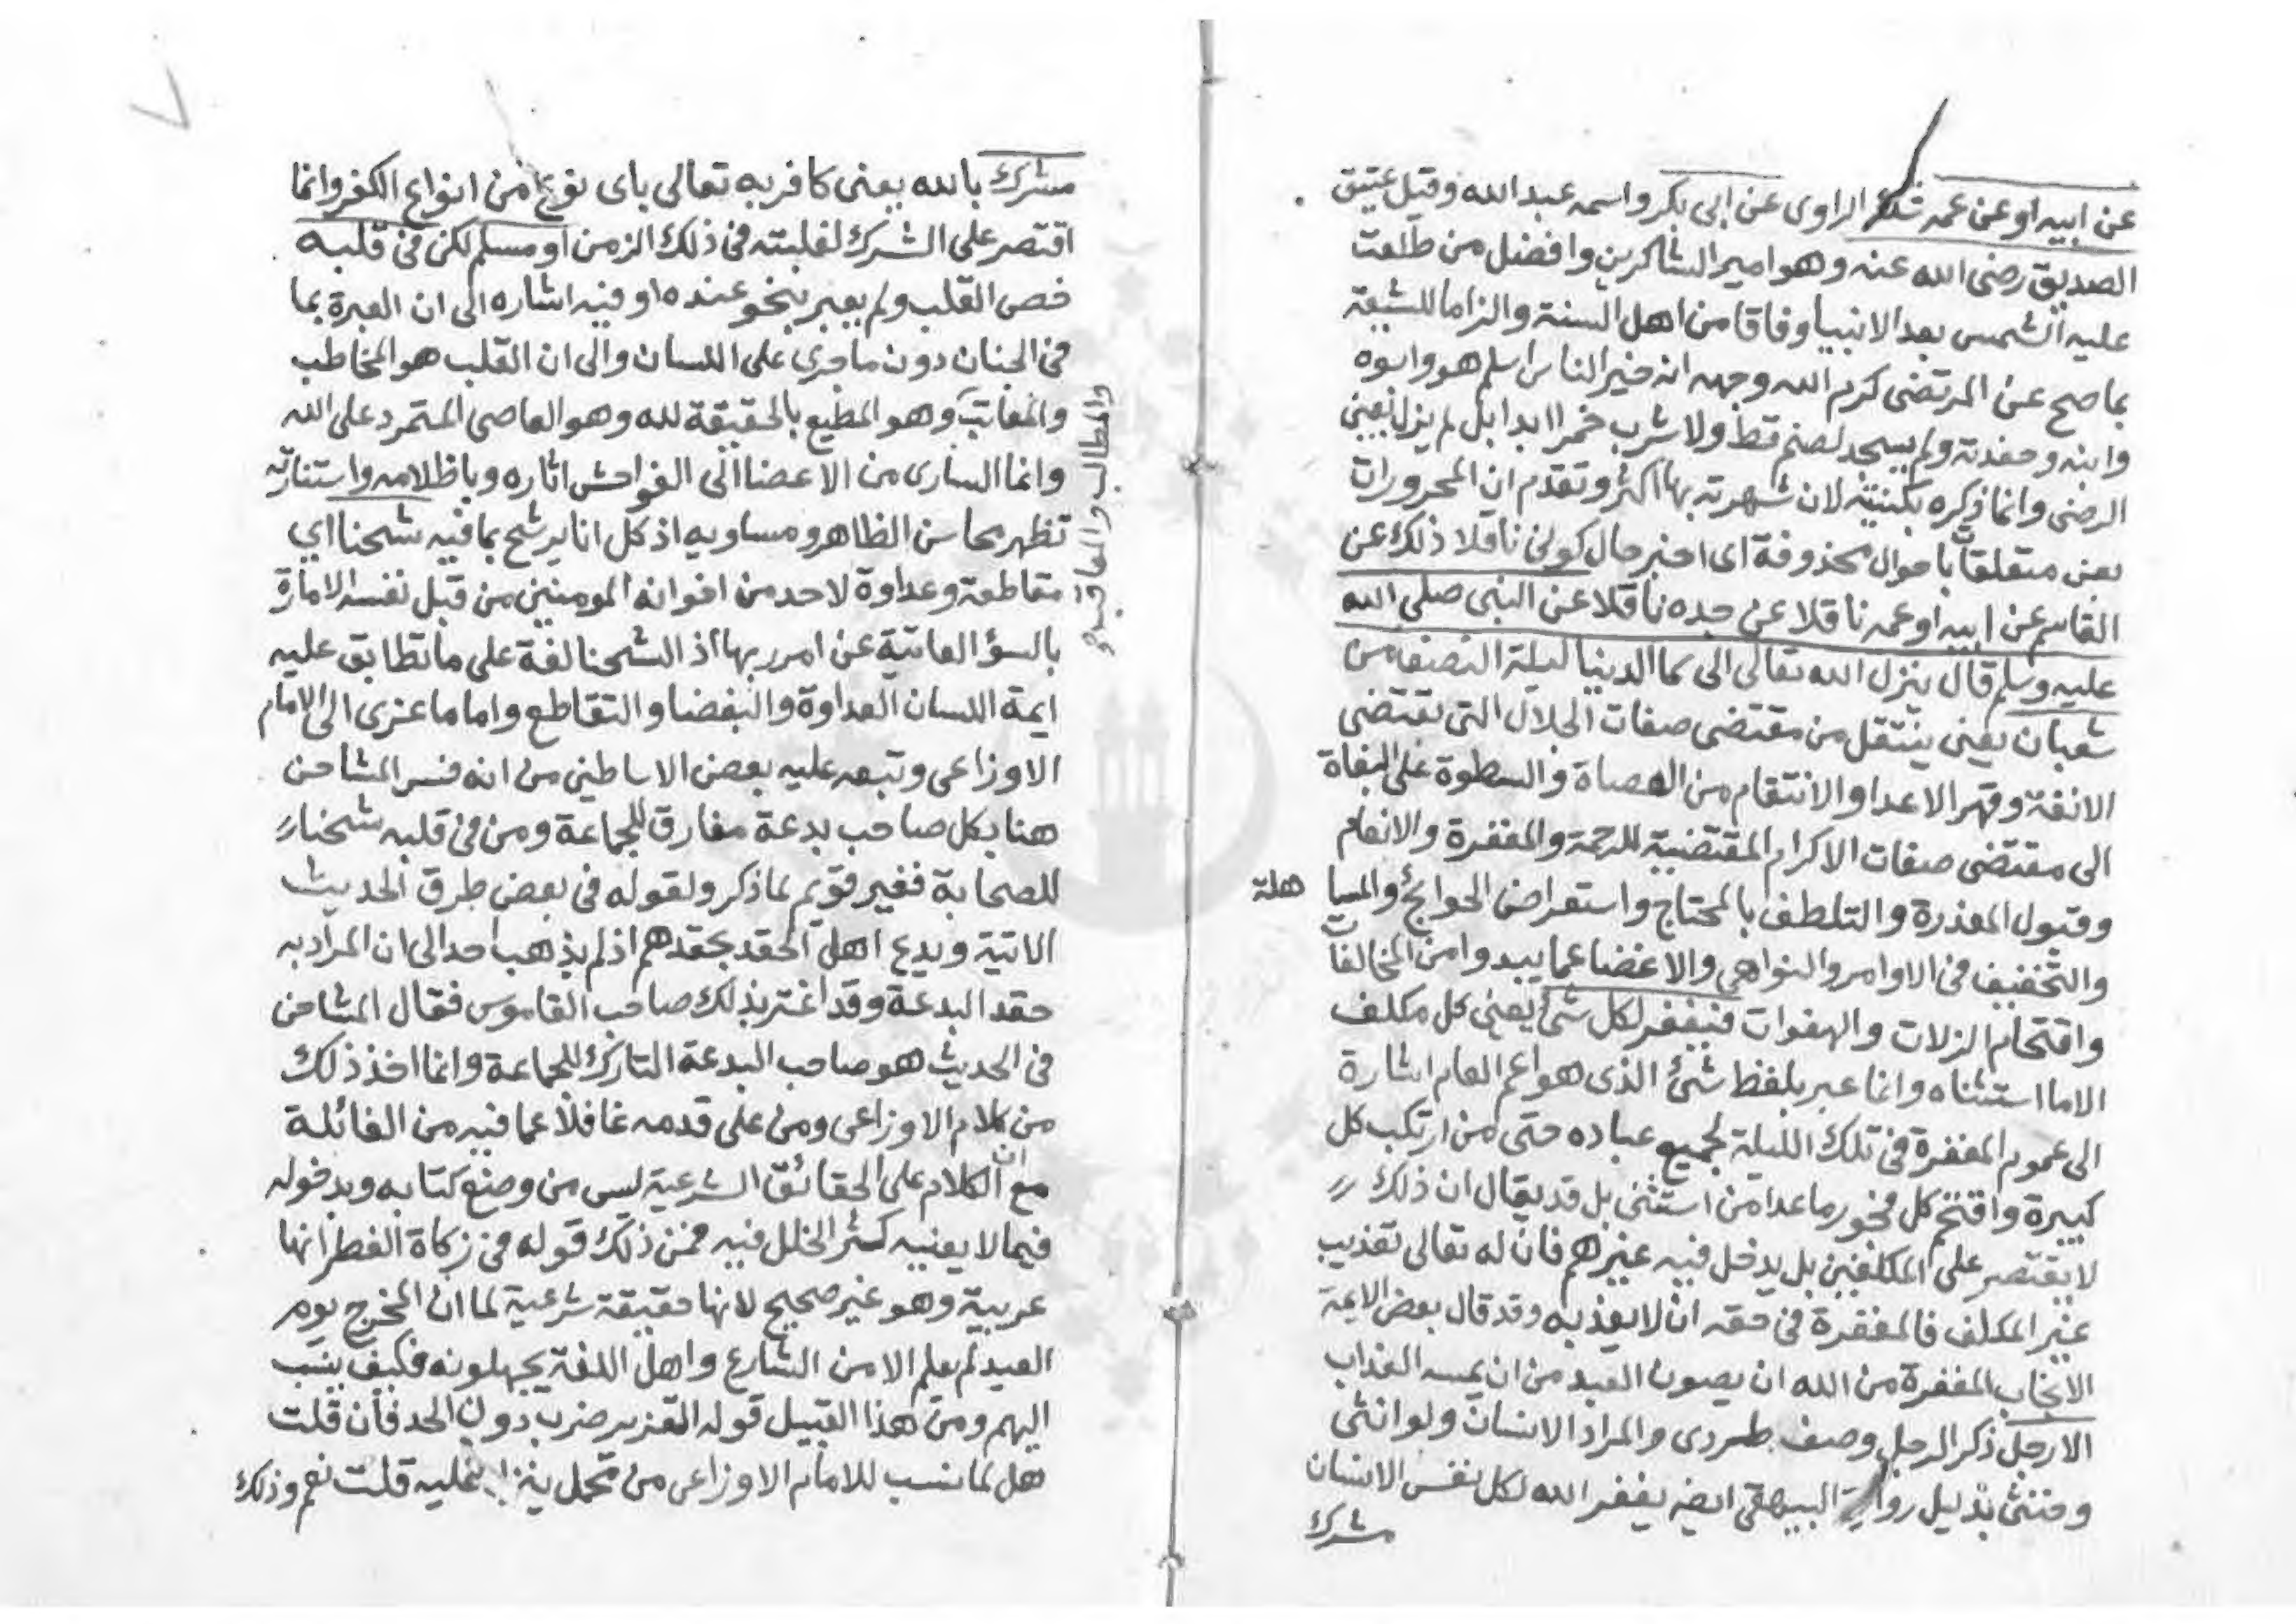 عن ابيه او عن عمه شك الراوى عن ابى بكر واسمه عبد الله وقيل عتيق
الصديق رضى الله عنه وهو امير الشاكرين وافضل من طلعت
عليه الشمس بعد الانبيا وفاقا من اهل السنة والزاما للشيعة
بما صح عن المرتضى كرم الله وجهه انه خير الناس اسلم هو وابوه
وابنه وحفدته ولم يسجد لصنم قط ولا شرب خمرا ابدا بل لم يزل بعين
الرضى وانما ذكره بكنيته لان شهرته بها اكثر وتقدم ان المجرورات
بعن متعلقات باحوال محذوفة اى اخبر حال كونى ناقلا ذلك عن
القاسم عن ابيه او عمه ناقلا عن جده ناقلا عن النبى صلى الله
عليه وسلم قال ينزل الله تعالى الى سما الدنيا ليلة النصف من
شعبان يعنى ينتقل من مقتضى صفات الجلال التى تقتضى
الانفة وقهر الاعدا والانتقام من العصاة والسطوة على البغاة
الى مقتضى صفات الاكرام المقتضية للرحمة والمغفرة والانعام
وقبول المعذرة والتلطف بالمحتاج واستعراض الحوائج والمسا هلة
والتخفيف فى الاوامر والنواهى والاغضا عما يبدوا من المخالفات
واقتحام الزلات والهفوات فيغفر لكل شئ يعنى كل مكلف
الا ما استثناه وانما عبر بلفظ شئ الذى هو اعم العام اشارة
الى عموم المغفرة فى تلك الليلة لجميع عباده حتى من ارتكب كل
كبيرة واقتحم كل فجور ما عدا من استثنى بل قد يقال ان ذلك
لا يقتصر على المكلفين بل يدخل فيه غيرهم فان له تعالى تعذيب
غير المكلف فالمغفرة فى حقه ان لا يعذبه وقد قال بعض الايمة
الانجاب المغفرة من الله ان يصون العبد من ان يمسه العذاب
الا رجل ذكر الرجل وصف طردى والمراد الانسان ولو انثى
وخنثى بدليل رواية البيهقى ايضه يغفر الله لكل نفس الا انسان
مشرك
مشرك بالله يعنى كافر به تعالى باى نوع من انواع الكفر وانما
اقتصر على الشرك لغلبته فى ذلك الزمن او مسلم لكن فى قلبه
خص القلب ولم يعبر بنحو عنده او فيه اشاره الى ان العبرة بما
فى الجنان دون ما جرى على اللسان والى ان القلب هو المخاطب
والمعاتب وهو المطيع بالحقيقة لله وهو العاصى المتمرد على الله
والمطالب والمعاقب
وانما السارى من الاعضا الى الفواحش اثاره وباظلامه واستنارته
تظهر محاسن الظاهر ومساويه اذ كل انا يرشح بما فيه شحنا اي
مقاطعة وعداوة لاحد من اخوانه المومنين من قبل نفسه الامارة
بالسؤ العاتية عن امر ربها اذ الشحنا لغة على ما تطابق عليه
ايمة اللسان العداوة والبغضا والتقاطع واما ما عزى الى الامام
الاوزاعى وتبعه عليه بعض الاساطين من انه فسر المشاحن
هنا بكل صاحب بدعة مفارق للجماعة ومن فى قلبه شحنا
للصحابة فغير قويم لما ذكر ولقوله فى بعض طرق الحديث
الاتية ويدع اهل الحقد بحقدهم اذ لم يذهب احد الى ان المراد به
حقد البدعة وقد اغتر بذلك صاحب القاموس فقال المشاحن
فى الحديث هو صاحب البدعة التارك للجماعة وانما اخذ ذلك
من كلام الاوزاعى ومن على قدمه غافلا عما فيه من الغائلة
مع ان الكلام على الحقائق الشرعية ليس من وضع كتابه وبدخوله
فيما لا يعنيه كثر الخلل فيه فمن ذلك قوله فى زكاة الفطر انها
عربية وهو غير صحيح لانها حقيقة شرعية لما ان المخرج يوم
العيد لم يعلم الا من الشارع واهل اللغة يجهلونه فكيف ينسب
اليهم ومن هذا القبيل قوله التعزير ضرب دون الحد فان قلت
هل لما نسب للامام الاوزاعى من محمل ينزل عليه قلت نعم وذلك